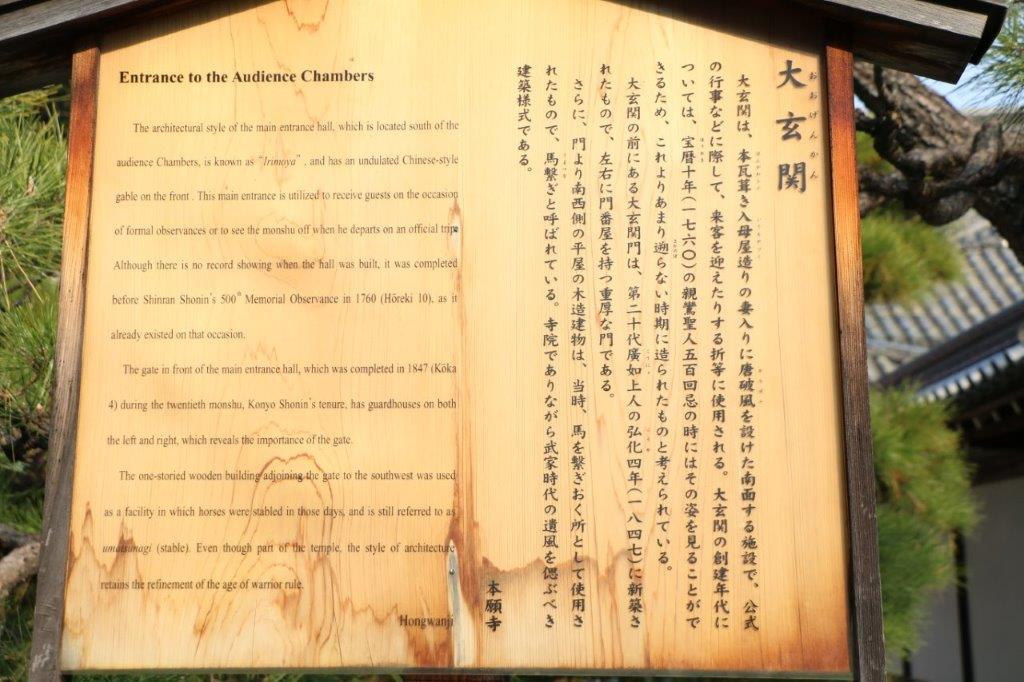 Entrance to the Audience Chambers
The architectural style of the main entrance hall, which is located south of the
audience Chambers, is known as "Irimoya", and has an undulated Chinese-style
gable on the front. This main entrance is utilized to receive guests on the occasion
of formal observances or to see the monshu off when he departs on an official trip.
Although there is no record showing when the hall was built, it was completed
before Shinran Shonin's 500th Memorial Observance in 1760 (Hōreki 10), as it
already existed on that occasion.
The gate in front of the main entrance hall, which was completed in 1847 (Kōka
4) during the twentieth monshu, Konyo Shonin's tenure, has guardhouses on both
the left and right, which reveals the importance of the gate.
The one-storied wooden building adjoining the gate to the southwest was used
as a facility in which horses were stabled in those days, and is still referred to as
umatsunagi (stable). Even though part of the temple, the style of architecture
retains the refinement of the age of warrior rule.
Hongwanji
大玄関
おおげんかん
大玄関は、本瓦葺き入母屋造りの妻入りに唐破風を設けた南面する施設で、公式
の行事などに際して、来客を迎えたりする折等に使用される。大玄関の創建年代に
ついては、宝暦十年(一七六〇)の親鸞聖人五百回忌の時にはその姿を見ることがで
きるため、これよりあまり遡らない時期に造られたものと考えられている。
大玄関の前にある大玄関門は、第二十代廣如上人の弘化四年(一八四七)に新築さ
れたもので、左右に門番屋を持つ重厚な門である。
さらに、門より南西側の平屋の木造建物は、当時、馬を繋ぎおく所として使用さ
れたもので、馬繋ぎと呼ばれている。寺院でありながら武家時代の遺風を偲ぶべき
建築様式である。
本願寺